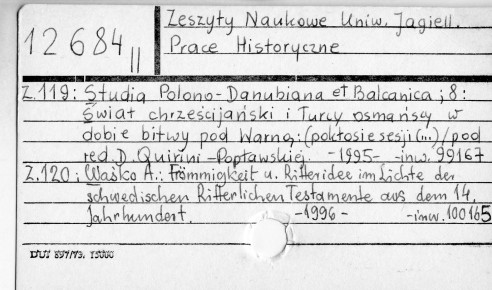 12 684 II
Zeszyty Naukowe Uniw. Jagiell.
Prace Historyczne
Z.119: Studia Polono-Danubiana et Balcanica; 8:
Świat chrześcijański i Turcy osmańscy w
dobie bitwy pod Warną: (pokłosie sesji (...)/pod
red. D. Quirini-Popławskiej. -1995- -inw. 99167
Z.120: Waśko A.: Frömmigkeit u. Ritteridee im Lichte der
schwedischen Ritterlichen Testamente aus dem 14.
Jahrhundert. -1996- -inw. 100165
DUJ 897/79. 15000